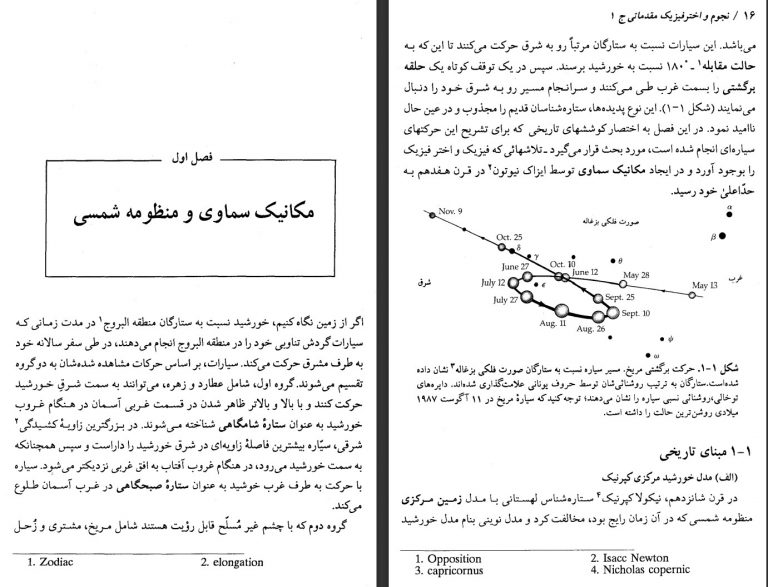 فصل اول
مکانیک سماوی و منظومه شمسی
اگر از زمین نگاه کنیم، خورشید نسبت به ستارگان منطقه البروج۱ در مدت زمانی که
سیارات گردش تناوبی خود را در منطقه البروج انجام می‌دهند، در طی سفر سالانه خود
به طرف مشرق حرکت می‌کند. سیارات، بر اساس حرکات مشاهده شده‌شان به دو گروه
تقسیم می‌شوند. گروه اول، شامل عطارد و زهره، می‌توانند به سمت شرقِ خورشید
حرکت کنند و با بالا و بالاتر ظاهر شدن در قسمت غربی آسمان در هنگام غروب
خورشید به عنوان ستارهٔ شامگاهی شناخته می‌شوند. در بزرگترین زاویهٔ کشیدگی۲
شرقی، سیاره بیشترین فاصلهٔ زاویه‌ای در شرق خورشید را داراست و سپس همچنانکه
به سمت خورشید می‌رود، در هنگام غروب آفتاب به افق غربی نزدیکتر می‌شود. سیاره
با حرکت به طرف غرب خوشید به عنوان ستارهٔ صبحگاهی در غرب آسمان طلوع
می‌کند.
گروه دوم که با چشم غیر مُسلّح قابل رؤیت هستند شامل مریخ، مشتری و زُحل
1. Zodiac 2. elongation
۱۶ / نجوم و اخترفیزیک مقدماتی ج ۱
می‌باشد. این سیارات نسبت به ستارگان مرتباً رو به شرق حرکت می‌کنند تا این که به
حالت مقابله۱ ـ ۱۸۰° نسبت به خورشید برسند. سپس در یک توقف کوتاه یک حلقه
برگشتی را بسمت غرب طی می‌کنند و سرانجام مسیر رو به شرق خود را دنبال
می‌نمایند (شکل ۱-۱). این نوع پدیده‌ها، ستاره‌شناسان قدیم را مجذوب و در عین حال
ناامید نمود. در این فصل به اختصار کوششهای تاریخی که برای تشریح این حرکتهای
سیاره‌ای انجام شده است، مورد بحث قرار می‌گیرد ـ تلاشهائی که فیزیک و اختر فیزیک
را بوجود آورد و در ایجاد مکانیک سماوی توسط ایزاک نیوتون۲ در قرن هفدهم به
حدّاعلیٰ خود رسید.
Nov. 9
صورت فلکی بزغاله
α
β
Oct. 25
δ
γ
θ
June 27
Oct. 10
June 12
May 28
غرب
شرق
July 12
ε
May 13
July 27
Sept. 25
Sept. 10
Aug. 11
Aug. 26
ψ
ω
شکل ۱-۱. حرکت برگشتی مریخ. مسیر سیاره نسبت به ستارگان صورت فلکی بزغاله۳ نشان داده
شده‌است.ستارگان به ترتیب روشنائی‌شان توسط حروف یونانی علامت‌گذاری شده‌اند. دایره‌های
توخالی،روشنائی نسبی سیاره را نشان می‌دهند؛ توجه کنید که سیارهٔ مریخ در ۱۱ آگوست ۱۹۸۷
میلادی روشن‌ترین حالت را داشته است.
۱-۱ مبنای تاریخی
(الف) مدل خورشید مرکزی کپرنیک
در قرن شانزدهم، نیکولا کپرنیک۴ ستاره‌شناس لهستانی با مدل زمین مرکزی
منظومه شمسی که در آن زمان رایج بود، مخالفت کرد و مدل نوینی بنام مدل خورشید
1. Opposition 2. Isacc Newton
3. capricornus 4. Nicholas copernic